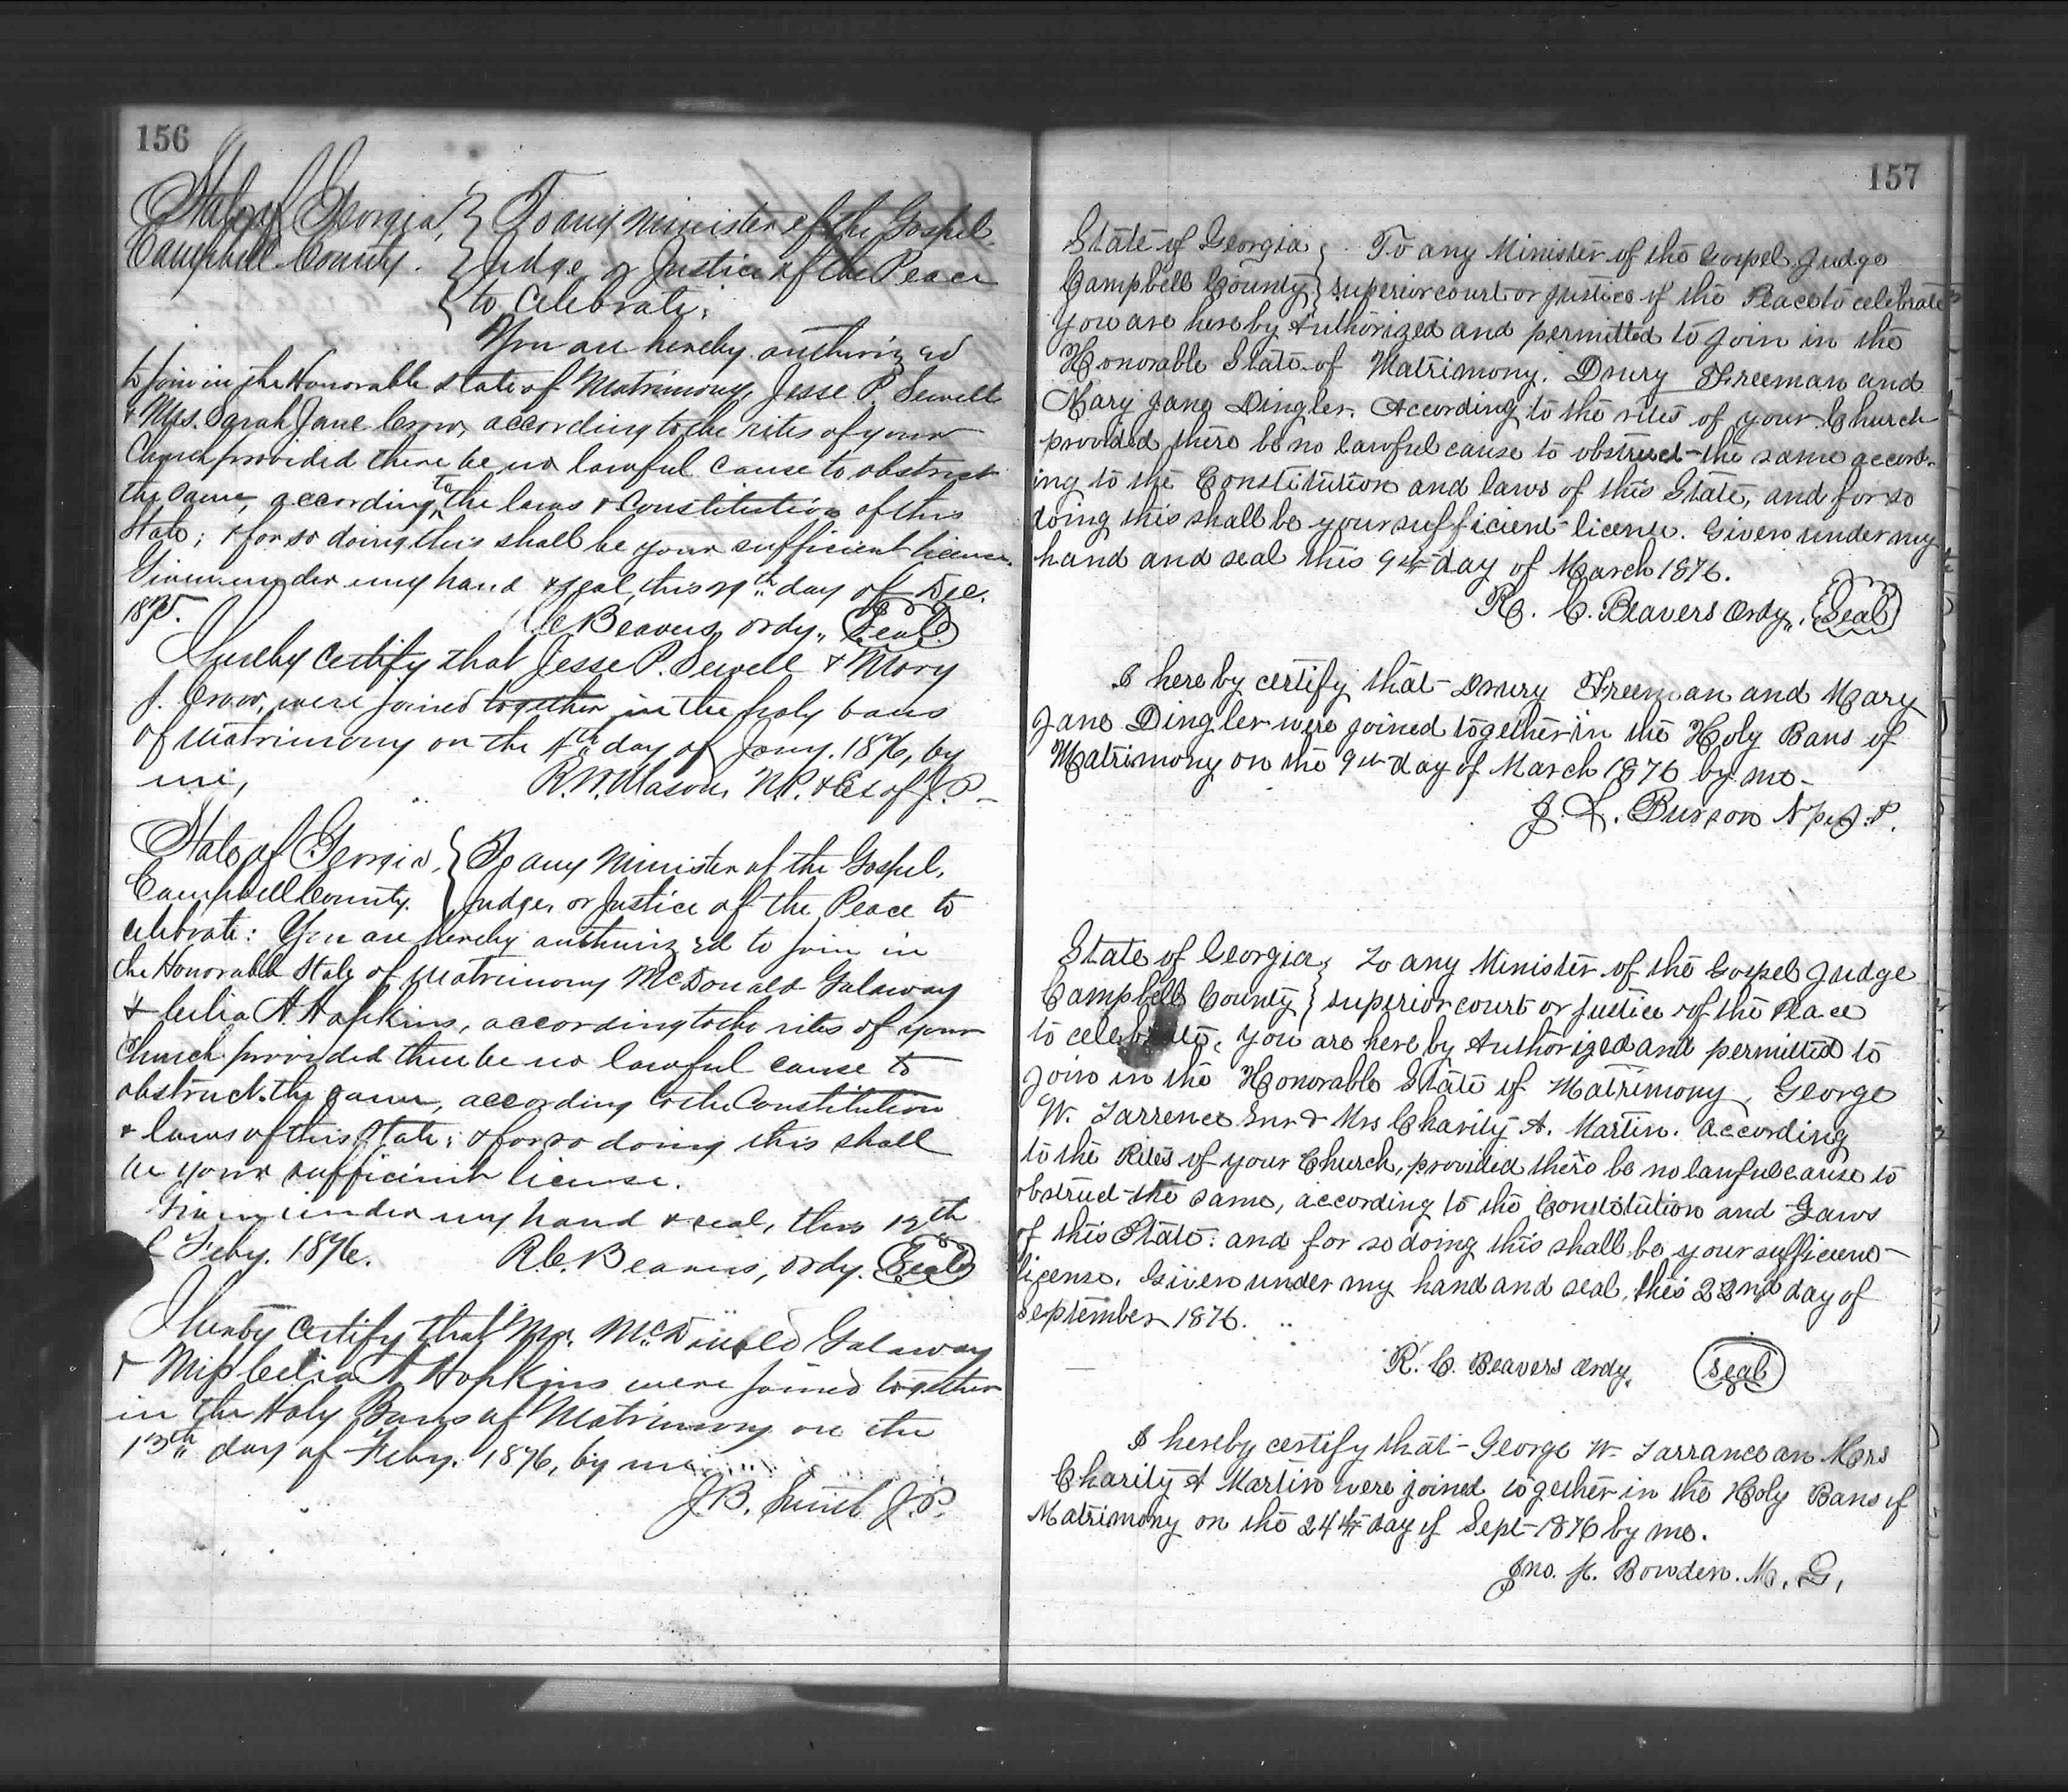 156
State of Georgia, } To any Minister of the Gospel
Campbell County. } Judge or Justice of the Peace
} to celebrate;
You are hereby authorized
to join in the Honorable state of Matrimony, Jesse P. Sewell
& Mrs. Sarah Jane Crow, according to the rites of your
Church provided there be no lawful cause to obstruct
the same, according to the laws & Constitution of this
State; & for so doing this shall be your sufficient license.
Given under my hand & seal, this day of Dec.
1875.
R.C. Beavers, ordy,, (Seal)
I hereby certify that Jesse P. Sewell & Mary
J. Crow, were joined together in the holy bans
of Matrimony on the 4th day of Jany. 1876, by
me,
R.W. Mason, N.P. & Ex off J.P.
State of Georgia, } To any Minister of the Gospel,
Campbell County. } Judge, or Justice of the Peace to
celebrate: You are hereby authorized to join in
the Honorable State of Matrimony McDonald Galaway
& Celia A Hopkins, according to the rites of your
Church provided there be no lawful cause to
obstruct the same, according to the Constitution
& laws of this State; & for so doing this shall
be your sufficient license.
Given under my hand & seal, this 12th
Feby. 1876. R.C. Beavers, ordy. (Seal)
I hereby certify that Mr. McDonald Galaway
& Miss Celia A Hopkins were joined together
in the Holy Bans of Matrimony on the
13th day of Feby. 1876, by me
J.B. Smith J.P.
157
State of Georgia } To any Minister of the Gospel Judge
Campbell County } superior court or Justice of the Peace to celebrate
You are hereby Authorized and permitted to join in the
Honorable State of Matrimony. Drury Freeman and
Mary Jane Dingler. According to the rites of your Church
provided there be no lawful cause to obstruct the same accord-
ing to the Constitution and laws of this State, and for so
doing this shall be your sufficient license. Given under my
hand and seal this 9th day of March 1876.
R. C. Beavers Ordy,. (Seal)
I hereby certify that Drury Freeman and Mary
Jane Dingler were joined together in the Holy Bans of
Matrimony on the 9th day of March 1876 by me-
J. L. Burson N p & J. P.
State of Georgia } To any Minister of the Gospel Judge
Campbell County } superior court or justice of the Place
to celebrate. You are hereby Authorized and permitted to
Join in the Honorable State of Matrimony, George
W. Tarrence Snr & Mrs Charity A. Martin. according
to the Rites of your Church, provided there be no lawful cause to
obstruct the same, according to the Constitution and Laws
of this State. and for so doing this shall be your sufficient
license. Given under my hand and seal, this 22nd day of
September 1876.
R. C. Beavers Ordy, (Seal)
I hereby certify that George W. Tarrance an Mrs
Charity A Martin were joined together in the Holy Bans of
Matrimony on the 24th day of Sept 1876 by me.
Jno. H. Bowden. M. G.